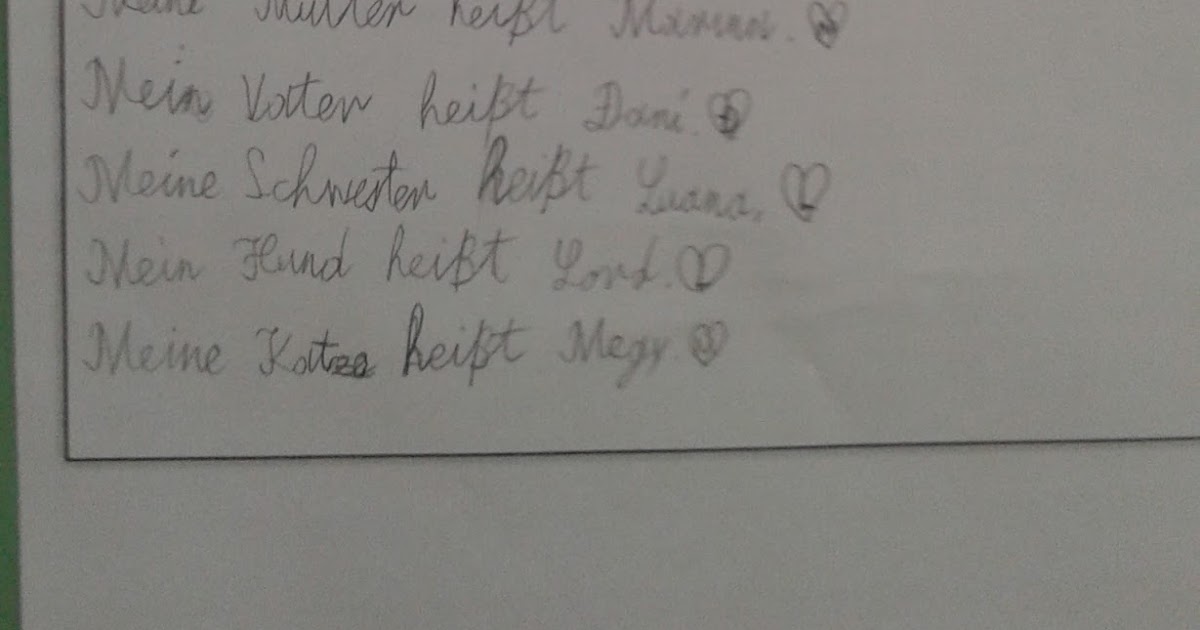 Meine Mutter heißt Maman.
Mein Vater heißt Dani.
Meine Schwester heißt Luana.
Mein Hund heißt Lord.
Meine Katze heißt Megy